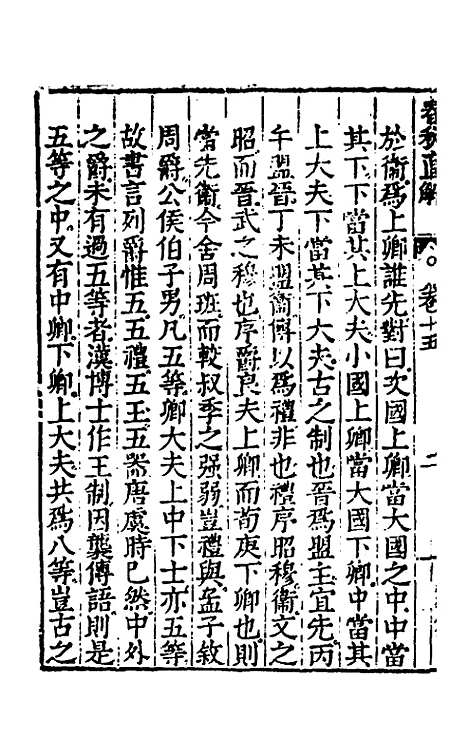 春秋直解 卷十五 二
於衞爲上卿誰先對曰次國上卿當大國之中中當
其下下當其上大夫小國上卿當大國下卿中當其
上大夫下當其下大夫古之制也晉爲盟主宜先丙
午盟晉丁未盟衞傳以爲禮非也禮序昭穆衞文之
昭而晉武之穆也序爵良夫上卿而荀庚下卿也則
當先衞今舍周班而較叔季之强弱豈禮與孟子敘
周爵公侯伯子男凡五等卿大夫上中下士亦五等
故書言列爵惟五五禮五玉五器唐虞時已然中外
之爵未有過五等者漢博士作王制因襲傳語則是
五等之中又有中卿下卿上大夫共爲八等豈古之